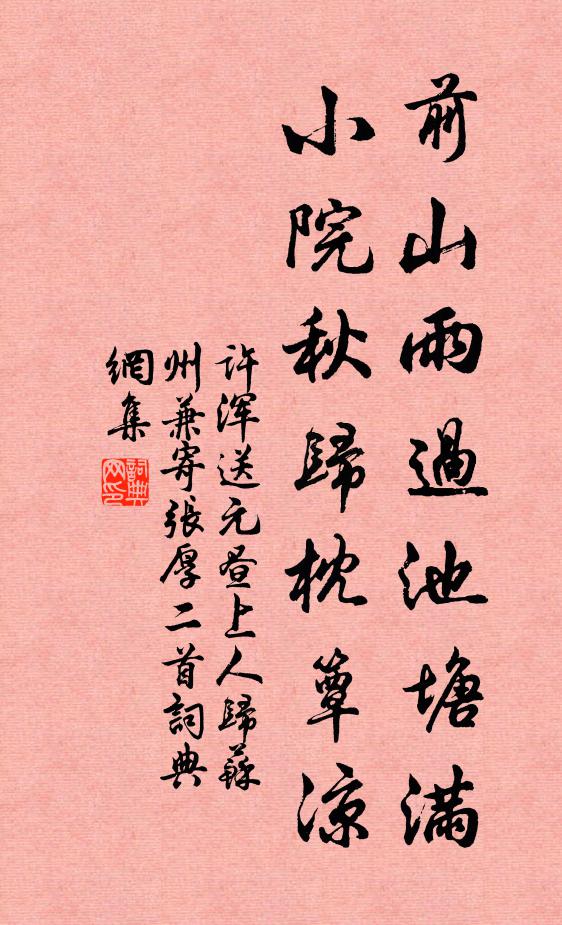 前山雨過池塘滿
小院秋歸枕簟涼
許渾送元晝上人歸蘇
州兼寄張厚二首詞典
網集
詞典
网印